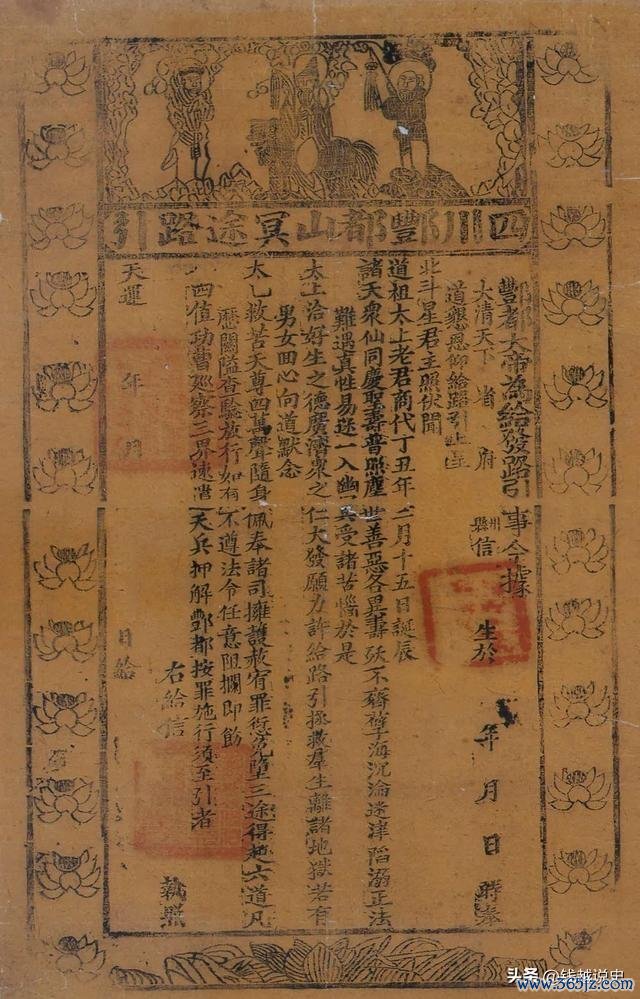 四川酆都山冥途路引
酆都大帝為給發路引事今據
大清天下 省 府 州縣 信 生於 年 月 日 時奉
道懇恩仰給路引上呈
北斗星君主照伏聞
道祖太上老君商代丁丑年二月十五日誕辰
諸天衆仙同慶聖壽普照塵世善惡各異壽殀不齊孽海沉淪迷津陷溺正法
難遇真性易迷一入幽冥受諸苦惱於是
太上洽好生之德廣濟衆之仁大發願力許給路引拯救羣生離諸地獄若有
男女回心向道默念
太乙救苦天尊四萬聲隨身佩奉諸司擁護赦宥罪愆免墮三途得超六道凡
歷關隘查驗放行如有不遵法令任意阻攔即飭
四值功曹巡察三界速遣天兵押解酆都按罪施行須至引者
右給信 執照
天運 年 月 日給
头条 @钱越说史
www.365jz.com